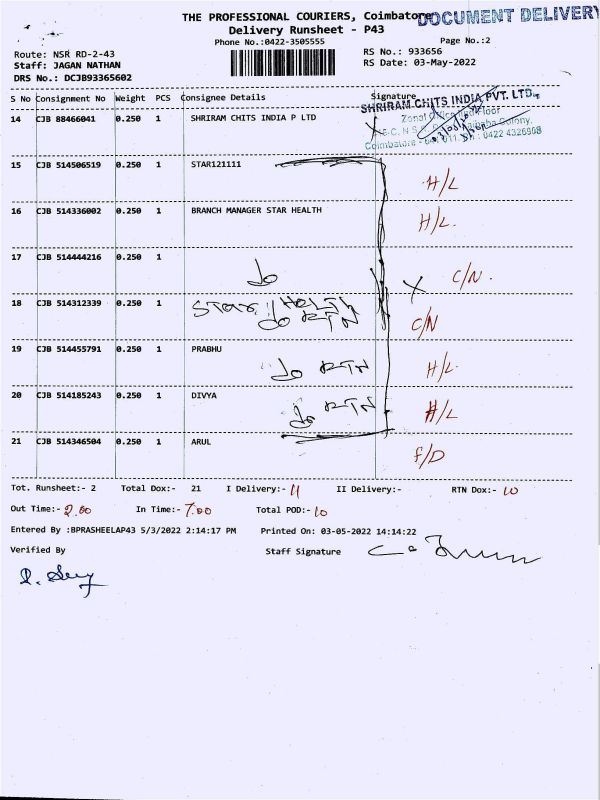 THE PROFESSIONAL COURIERS, Coimbatore
DOCUMENT DELIVERY
Delivery Runsheet - P43
Phone No.:0422-3505555
Page No.:2
Route: NSR RD-2-43
RS No.: 933656
Staff: JAGAN NATHAN
RS Date: 03-May-2022
DRS No.: DCJB93365602
S No Consignment No Weight PCS Consignee Details Signature
SHRIRAM CHITS INDIA PVT. LTD.,
14 CJB 88466041 0.250 1 SHRIRAM CHITS INDIA P LTD
Zonal Office Floor
Colony,
Coimbatore - 641 011. 0422 4326968
15 CJB 514506519 0.250 1 STAR121111 H/L
16 CJB 514336002 0.250 1 BRANCH MANAGER STAR HEALTH H/L.
17 CJB 514444216 0.250 1 do X C/N.
18 CJB 514312339 0.250 1 STAR HELTH C/N
do RTN
19 CJB 514455791 0.250 1 PRABHU do RTN H/L.
20 CJB 514185243 0.250 1 DIVYA do RTN H/L
21 CJB 514346504 0.250 1 ARUL F/D
Tot. Runsheet:- 2 Total Dox:- 21 I Delivery:- 11 II Delivery:- RTN Dox:- 10
Out Time:- 2.00 In Time:- 7.00 Total POD:- 10
Entered By :BPRASHEELAP43 5/3/2022 2:14:17 PM Printed On: 03-05-2022 14:14:22
Verified By Staff Signature